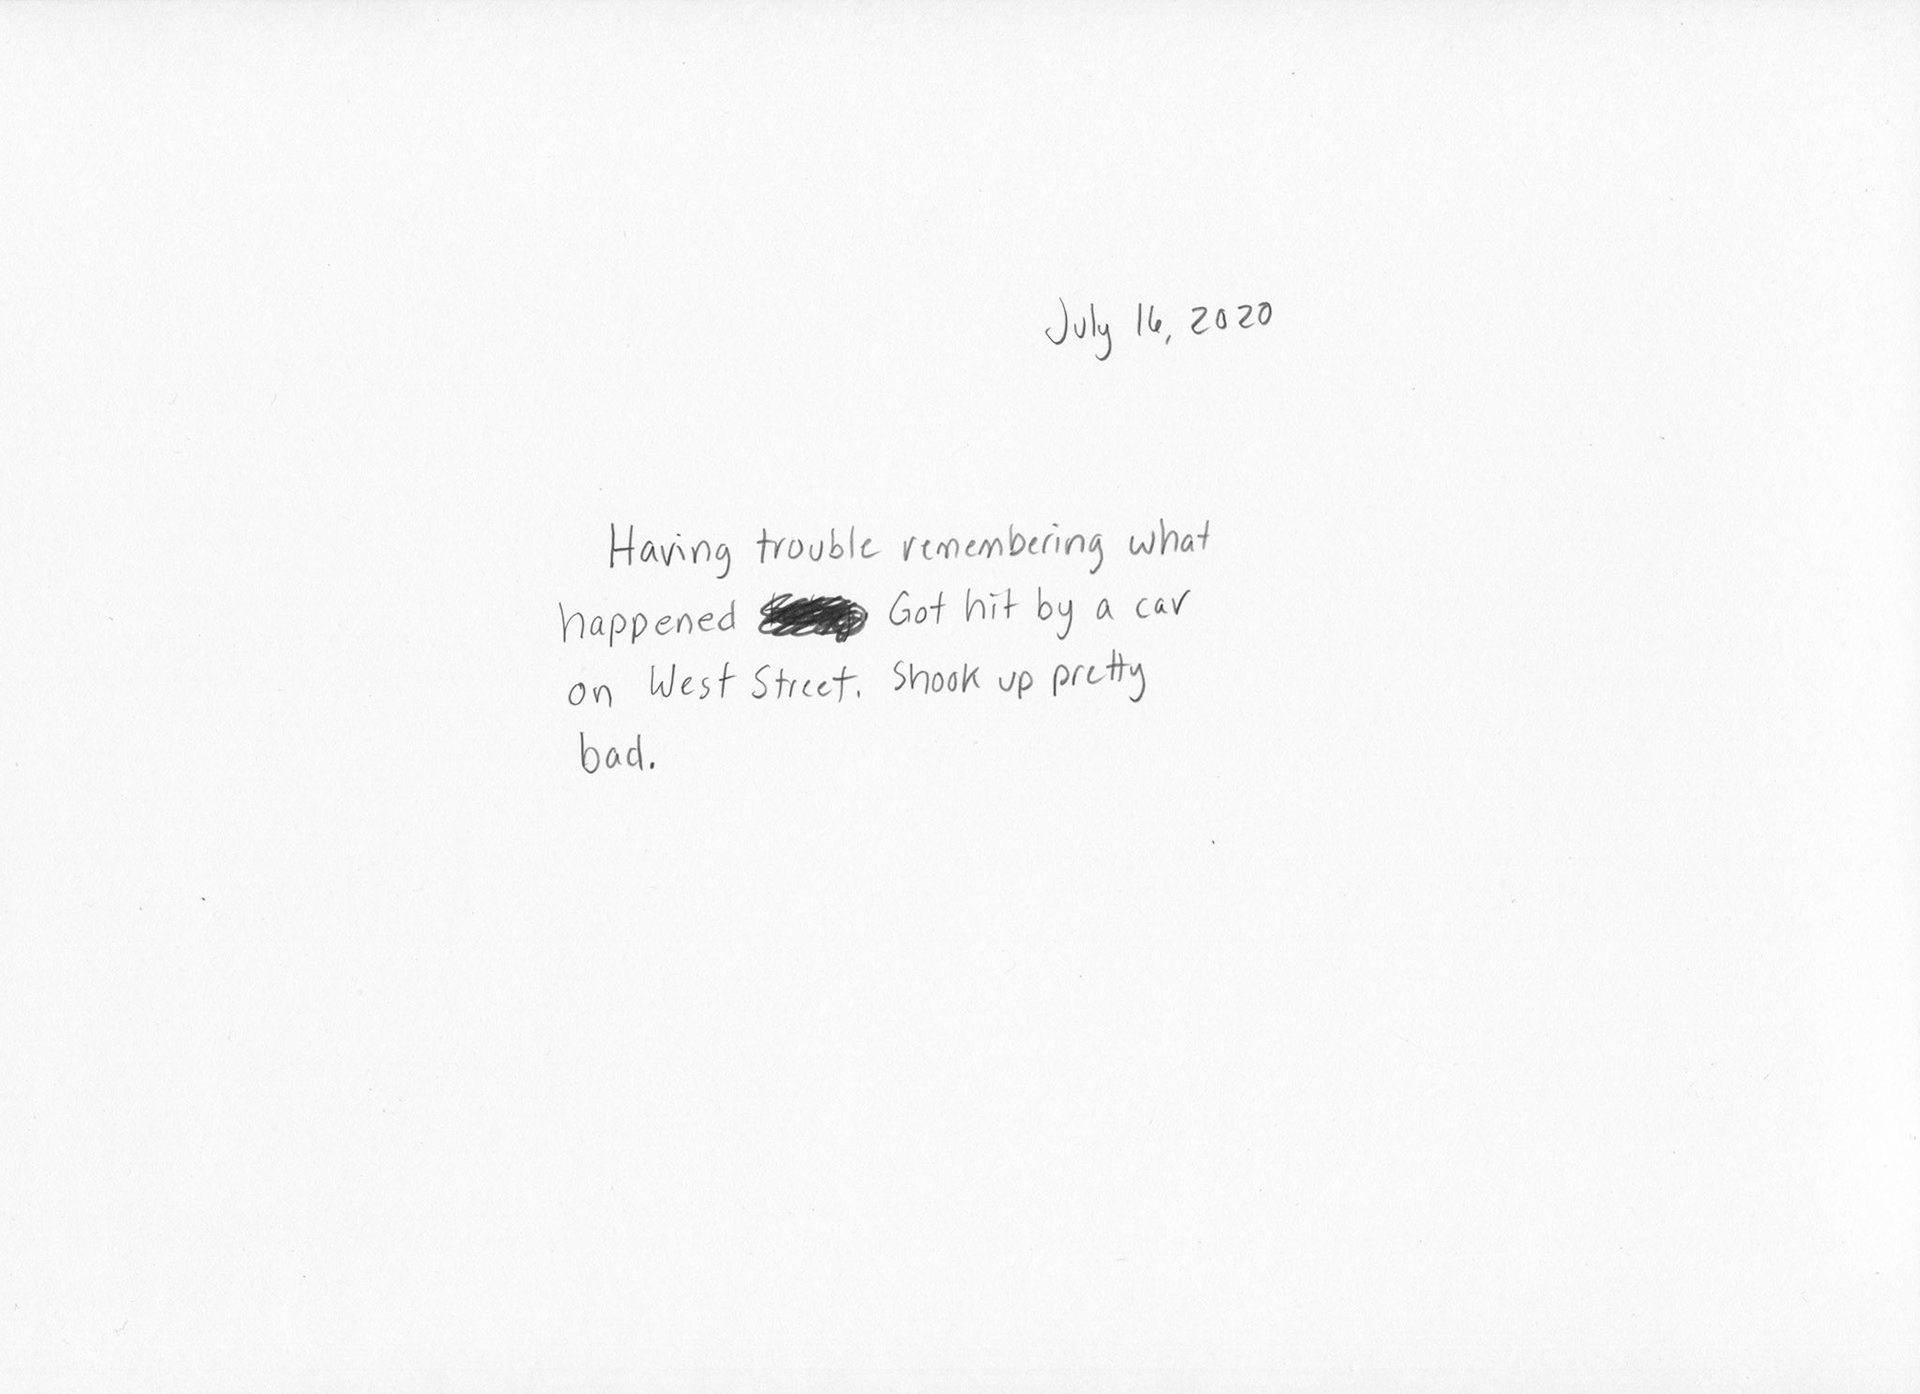 July 16, 2020
Having trouble remembering what
happened Got hit by a car
on West Street. Shook up pretty
bad.